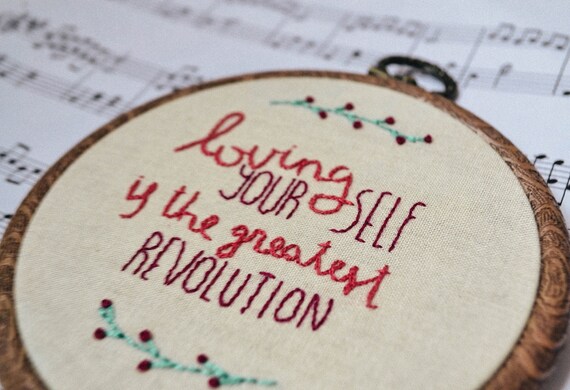 loving
YOURSELF
is the greatest
REVOLUTION